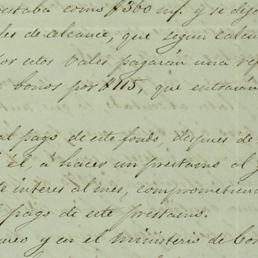 ectaba como $500 mf. y se dej
les de alcance, que segun calcu
or estos vales pagarán una re
bonos por $115, que entrarán
al pago de este fondo, despues de
el a haces un prestamo al g
e interes al mes, comprometiend
pago de este prestamo.
ureo y en el ministerio de Con